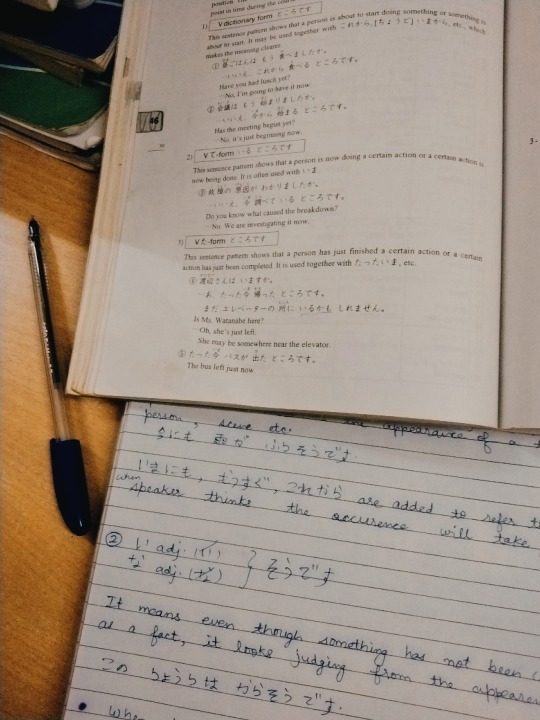 point in time during the
1) V dictionary form ところです
This sentence pattern shows that a person is about to start doing something or something is
about to start. It may be used together with これから, [ちょうど] いまから, etc., which
makes the meaning clearer.
① 昼ごはんは もう 食べましたか。
…いいえ、これから 食べる ところです。
Have you had lunch yet?
…No, I'm going to have it now.
② 会議は もう 始まりましたか。
…いいえ、今から 始まる ところです。
Has the meeting begun yet?
…No, it's just beginning now.
46
2) Vて-form いる ところです
This sentence pattern shows that a person is now doing a certain action or a certain action is
now being done. It is often used with いま.
③ 故障の 原因が わかりましたか。
…いいえ、今 調べて いる ところです。
Do you know what caused the breakdown?
…No. We are investigating it now.
3) Vた-form ところです
This sentence pattern shows that a person has just finished a certain action or a certain
action has just been completed. It is used together with たったいま, etc.
④ 渡辺さんは いますか。
…あ、たった今 帰った ところです。
まだ エレベーターの 所に いるかも しれません。
Is Ms. Watanabe here?
…Oh, she's just left.
She may be somewhere near the elevator.
⑤ たった今 バスが 出た ところです。
The bus left just now.
3-
person, scene etc. appearance of a
今にも 雨が ふりそうです
いまにも, もうすぐ, これから are added to refer
when
speaker thinks the occurence will take
② い adj. (い)
な adj. (な) } そうです
It means even though something has not been
as a fact, it looks judging from the
この りょうりは からそうです.
• when